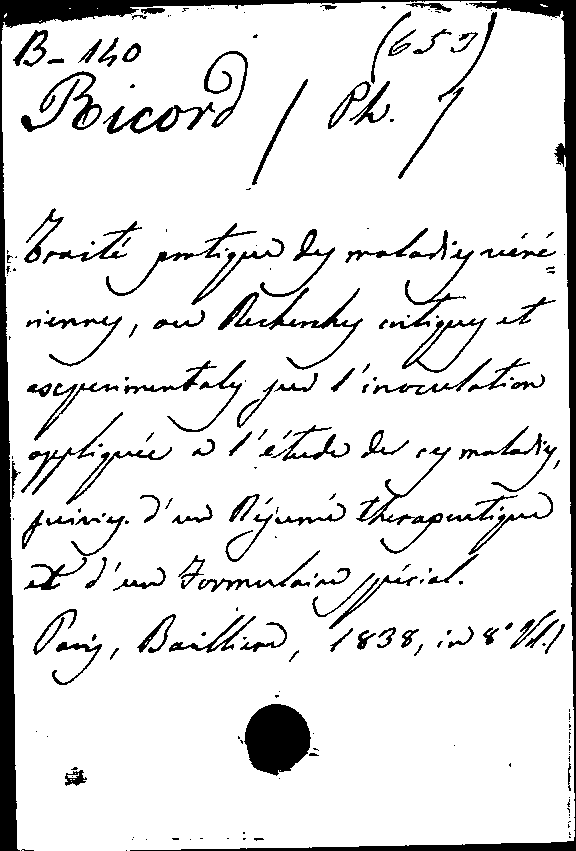 B-140 (657)
Ricord / Ph. /
Traité pratique des maladies véné=
riennes, ou Recherches critiques et
experimentales sur l'inoculation
appliquée a l'étude de ces maladies,
suivies d'un Résumé thérapeutique
et d'un Formulaire spécial.
Paris, Baillière, 1838, in 8° Vol. 1